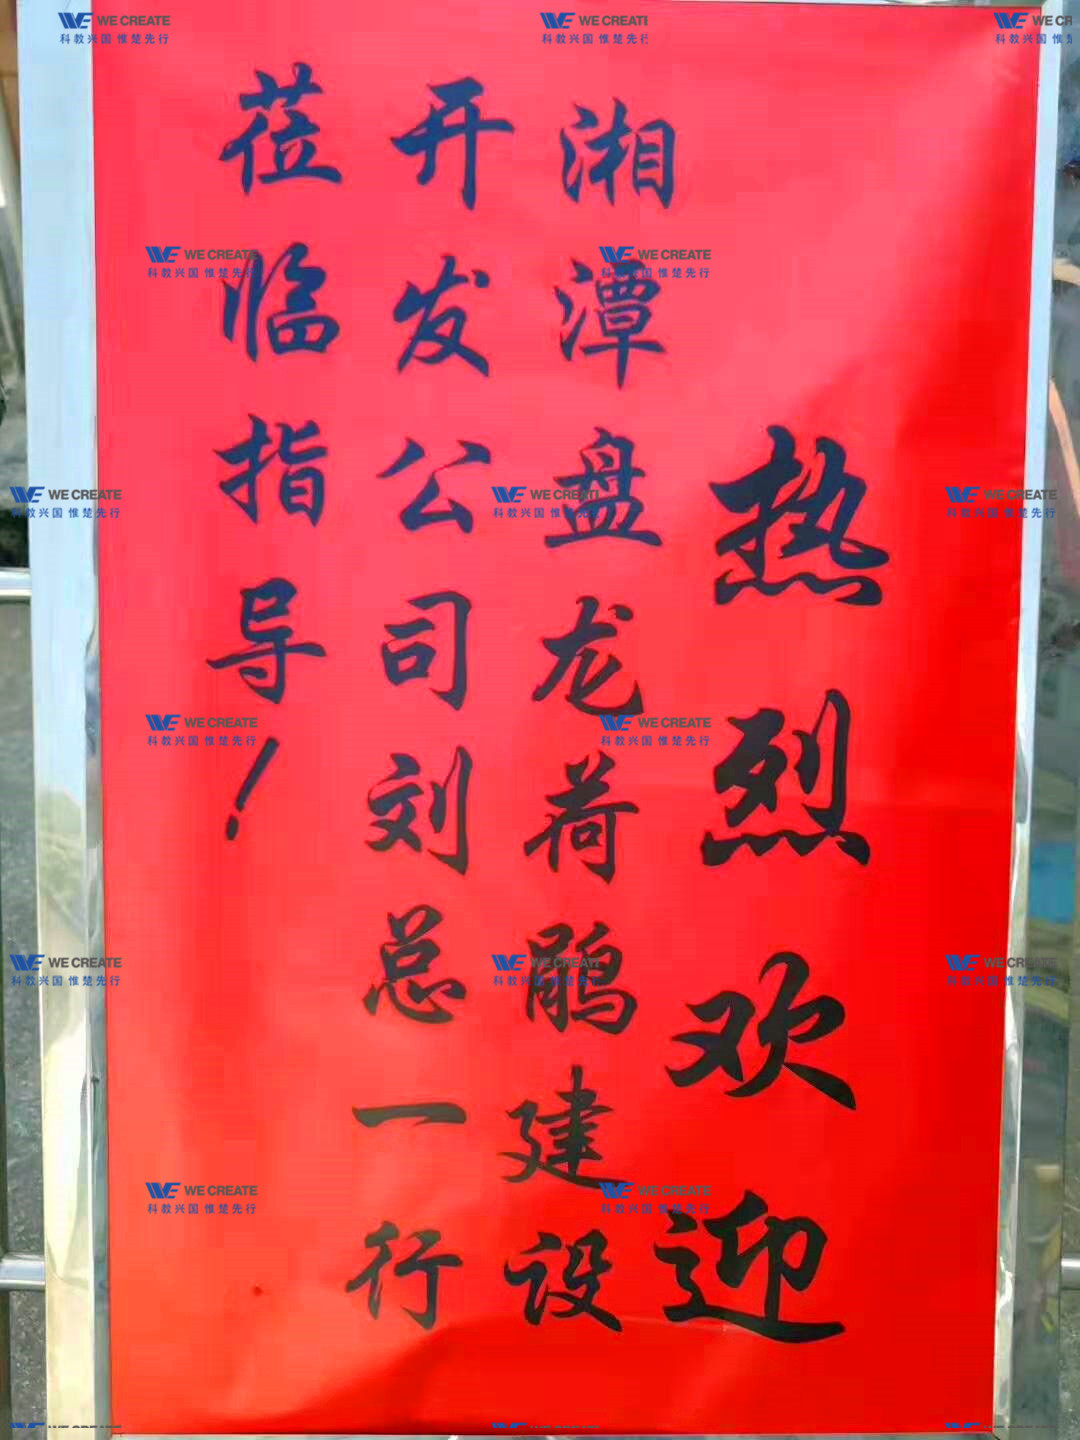 热烈欢迎
湘潭盘龙荷鹃建设
开发公司刘总一行
莅临指导！
WE CREATE
科教兴国 惟楚先行